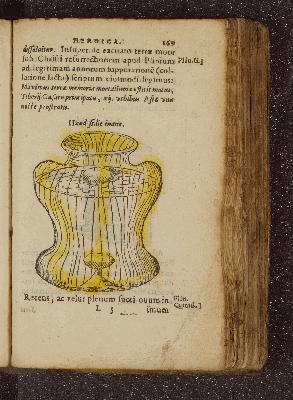 HERMETICA. 169
dissolutum. Insigni de excitato terræ motu
sub Christi resurrectionem apud Plinium
ad legitimam annorum supputationē (col-
latione facta) scriptum eiusmodi legimus:
Maximus terræ memoria mortalium extitit motus,
Tiberij Cæsaris principatu, xij. urbibus Asiæ una
nocte prostratis.
Plin. li. 2.
Haud secus inane.
Recens, ac velut plenum succi ouum in
L 5 imum